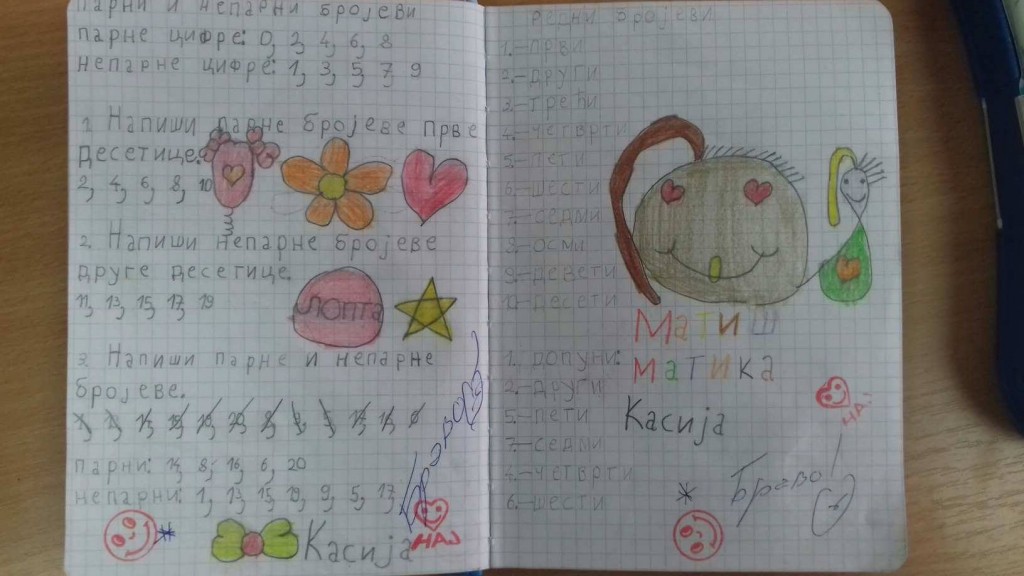 парни и непарни бројеви
парне цифре: 0, 2, 4, 6, 8
непарне цифре: 1, 3, 5, 7, 9
1. Напиши парне бројеве прве
десетице.
2, 4, 6, 8, 10
2. Напиши непарне бројеве
друге десетице.
11, 13, 15, 17, 19
ЛОПТА
3. Напиши парне и непарне
бројеве.
парни: 14, 8, 16, 6, 20
непарни: 1, 13, 15, 19, 9, 5, 17,
Браво
Касија
НАЈ
редни бројеви
1.—први
2.—други
3.—трећи
4.—четврти
5.—пети
6.—шести
7.—седми
8.—осми
9.—девети
10.—десети
Матиш
матика
1. допуни:
2.—други
5.—пети
7.—седми
4.—четврти
6.—шести
Касија
НАЈ
Браво!